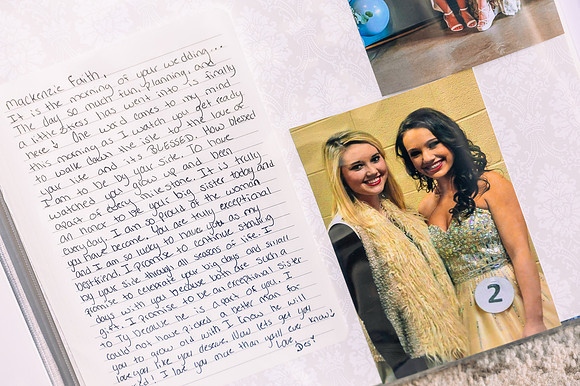 Mackenzie Faith,
It is the morning of your wedding...
The day so much fun, planning, and
a little stress has went into is finally
here! One word comes to my mind
this morning as I watch you get ready
to walk down the isle to the love of
your life and its BLESSED. How blessed
I am to be by your side. To have
watched you grow up and been
apart of every milestone. It is truly
an honor to be your big sister today and
everyday. I am so proud of the woman
you have become. You are truly exceptional
and I am so lucky to have you as my
bestfriend. I promise to continue standing
by your side through all seasons of life. I
promise to celebrate your big days and small
days with you because both are such a
gift. I promise to be an exceptional sister
to Ty because he is a part of you. I
could not have picked a better man for
you to grow old with. I know he will
love you like you deserve. Now lets get you
I love you more than you'll ever know!
Love,
Des
2